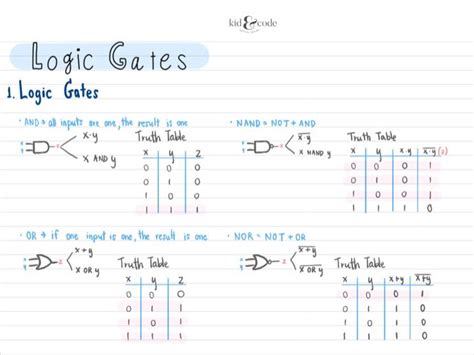 kid&code
Logic Gates
1. Logic Gates
• AND → all inputs are one, the result is one
x·y
x AND y
x
y
z
Truth Table
x y z
0 0 0
0 1 0
1 0 0
1 1 1
• NAND = NOT + AND
x·y
x NAND y
x
y
z
Truth Table
x y x·y x·y (z)
0 0 0 1
0 1 0 1
1 0 0 1
1 1 1 0
• OR → if one input is one, the result is one
x+y
x OR y
x
y
z
Truth Table
x y z
0 0 0
0 1 1
1 0 1
1 1 1
• NOR = NOT + OR
x+y
x OR y
x
y
z
Truth Table
x y x+y x+y
0 0 0 1
0 1 1 0
1 0 1 0
1 1 1 0